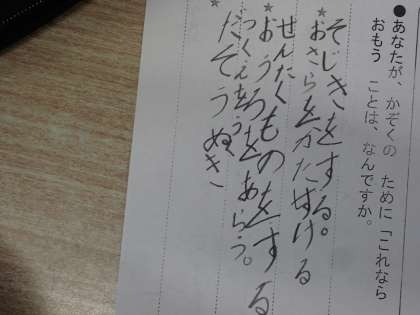 ●あなたが、かぞくの ために「これなら
おもう ことは、なんですか。
そじきをする。
★おさらをかたずける
★せんたくものをする
★おうろをあらう。
つくえをふく
★だぞうぬき